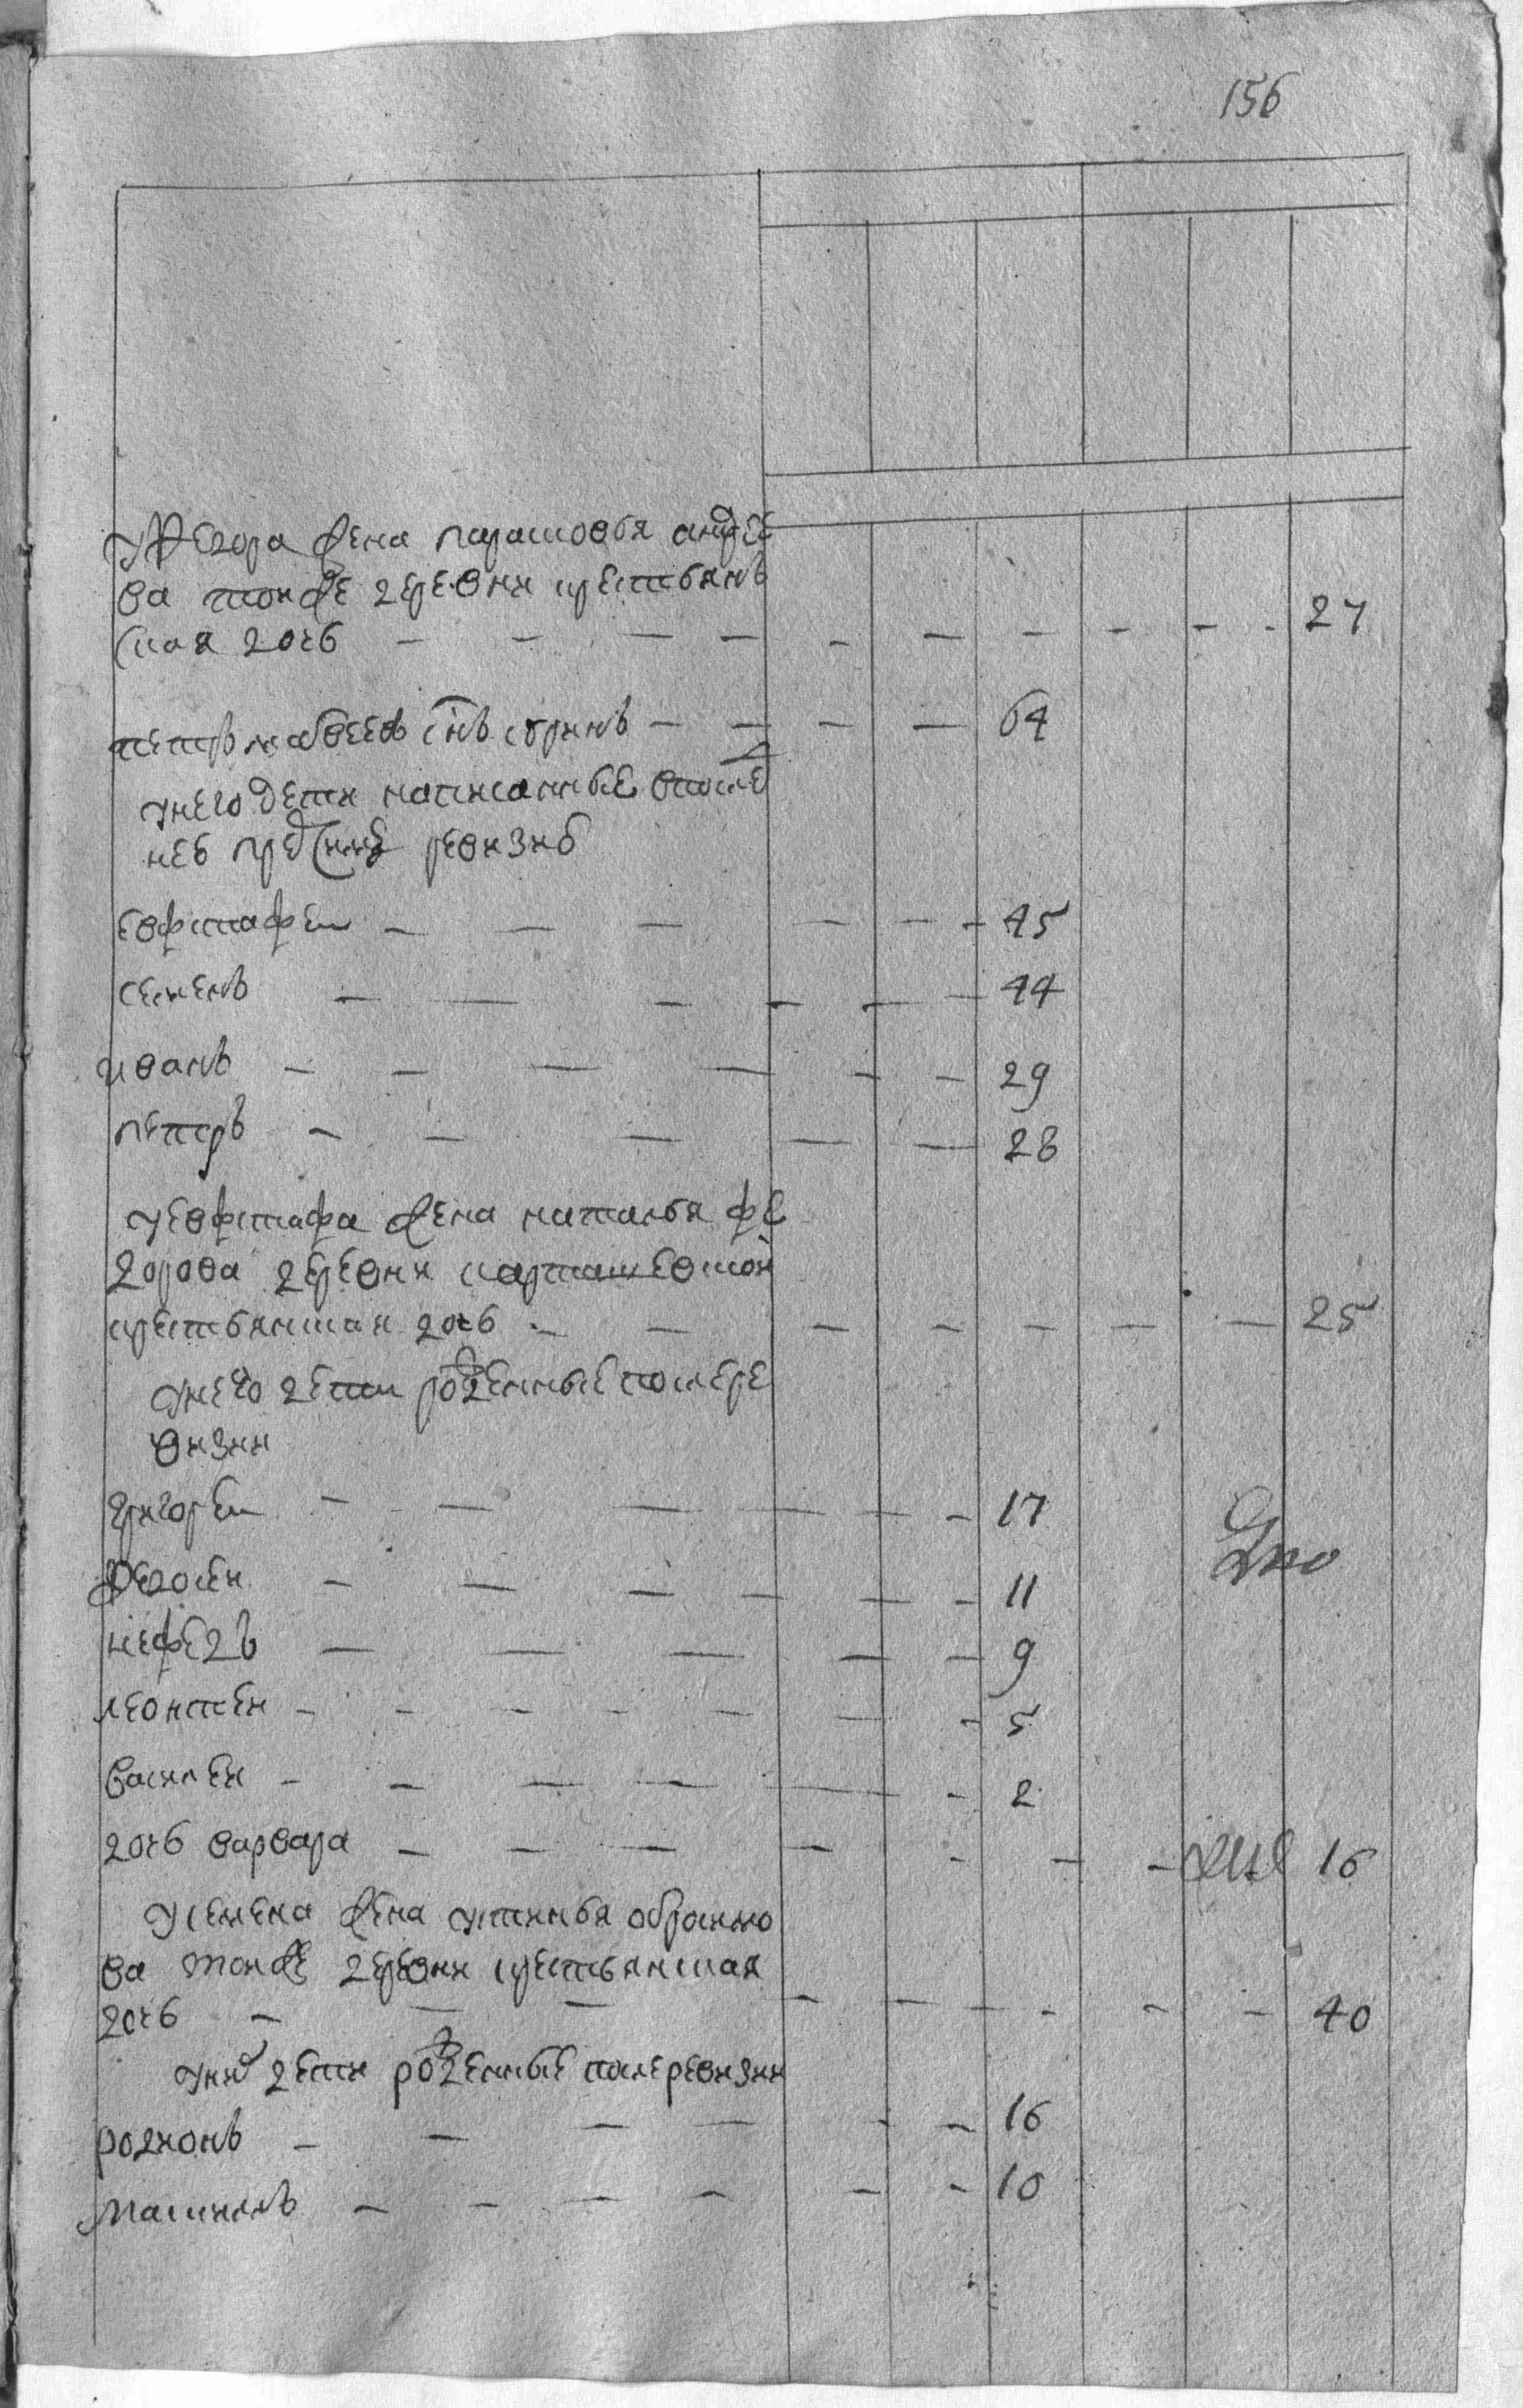 156
уФедора жена парасковья андрее
ва тойже деревни крестьянъ
ская дочь — — — — — — — — — — 27
петръ матвеевъ снъ скринъ — — — — 64
унего дети написанныє впосле
ней пред сим ревизиі
евфстафеи — — — — — — 45
семенъ — — — — — — 44
иванъ — — — — — — 29
петръ — — — — — 28
уевфстафа жена наталья фе
дорова деревни карташевской
крестьянская дочь — — — — — — — 25
унего дети рожденные после ре
визии
григореи — — — — — — 17
Федосеи — — — — — — 11
нефедъ — — — — — 9
леонтеи — — — — — — — 5
василеи — — — — — — 2
дочь варвара — — — — — — — 16
усемена жена устинья
ва тойже деревни крестьянская
дочь — — — — — — — — 40
унихъ дети рожденные после ревизии
родионъ — — — — — — 16
Максимъ — — — — — — 10